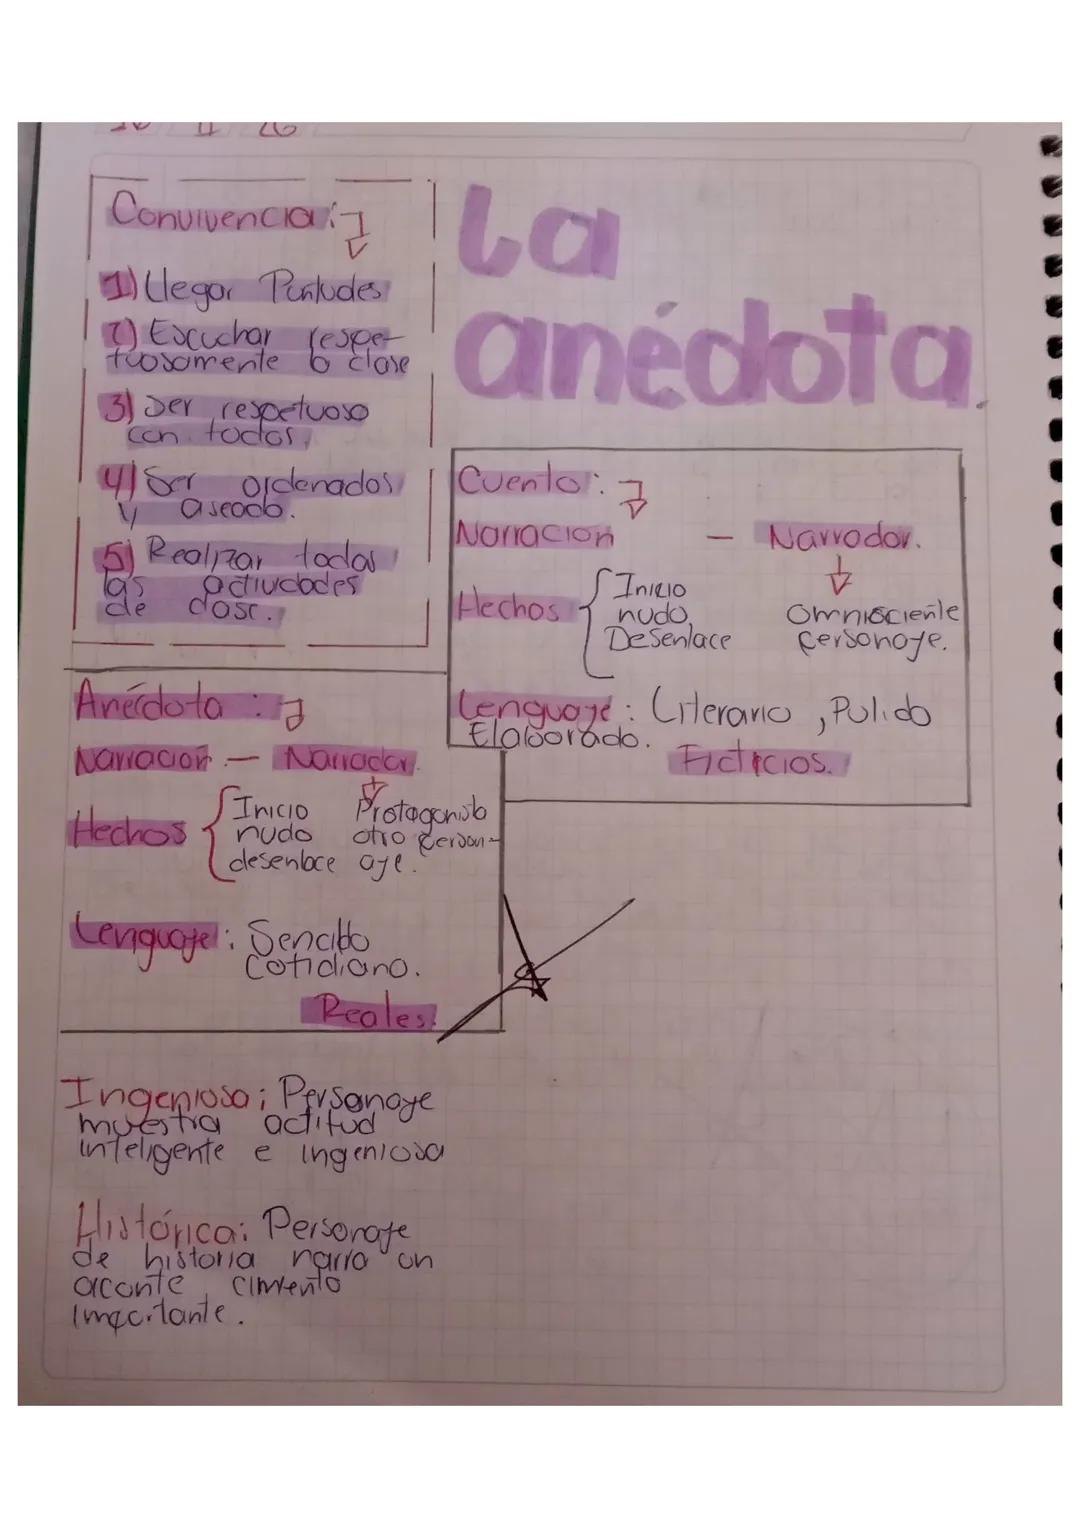 Convivencia:
1) Llegar Puntudes
2) Escuchar respe-
tuosamente la clase
3) Ser respetuoso
con todos,
4) Ser ordenados
y aseado.
5) Realizar todas
las actividades
de clase.
La
anédota.
Cuento:
Narracion - Narrador.
Hechos Inicio
nudo,
Desenlace
Omnisciente
Personaje.
Lenguaje: Literario, Pulido
Elaborado.
Ficticios.
Anécdota:
Narracion - Narrador.
Hechos Inicio
nudo
desenlace
Protagonista
otro person-
aje.
Lenguaje: Sencillo
Cotidiano.
Reales.
Ingeniosa; Personaje
muestra actitud
inteligente e ingeniosa
Histórica: Personaje
de historia narra un
aconte cimiento
importante.